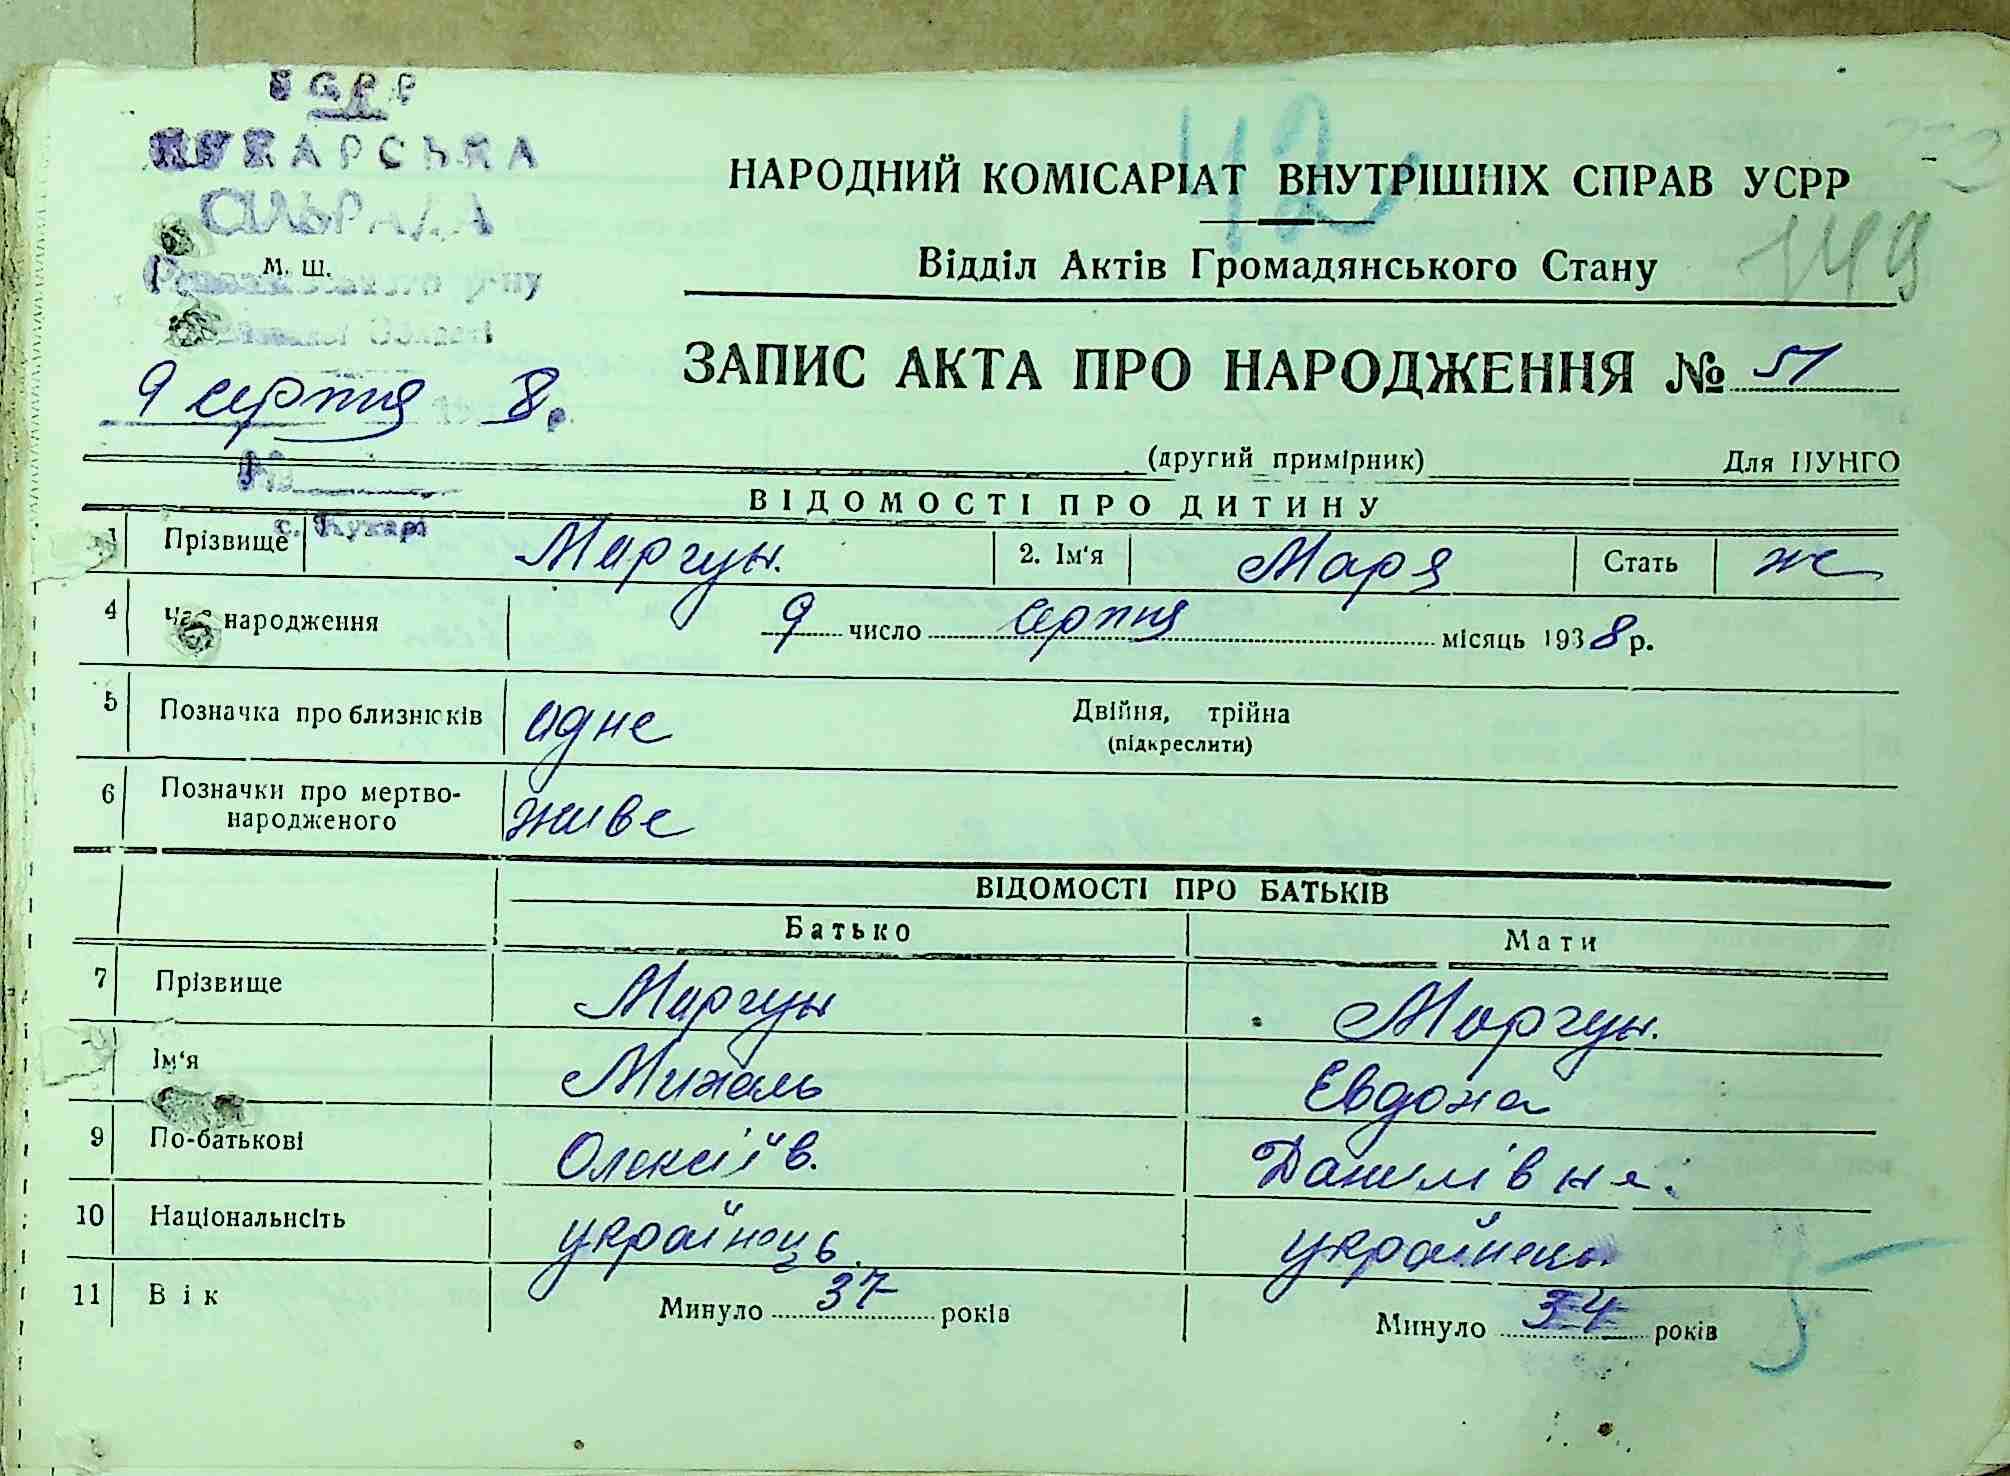 УСРР
КУХАРСЬКА
СІЛЬРАДА
р-ну
Області
9 серпня 8 р.
№
с. Кухарі
м. ш.
42
149
НАРОДНИЙ КОМІСАРІАТ ВНУТРІШНІХ СПРАВ УСРР
Відділ Актів Громадянського Стану
ЗАПИС АКТА ПРО НАРОДЖЕННЯ № 51
(другий примірник) Для ЦУНГО
ВІДОМОСТІ ПРО ДИТИНУ
1 Прізвище Моргун. 2. Ім'я Маря Стать ж
4 Час народження 9 число серпня місяць 1938 р.
5 Позначка про близнюків одне Двійня, трійна
(підкреслити)
6 Позначки про мертво-
народженого живе
ВІДОМОСТІ ПРО БАТЬКІВ
Батько Мати
7 Прізвище Моргун Моргун.
Ім'я Михаль Евдоха
9 По-батькові Олексіїв. Данилівна.
10 Національність українець українка
11 Вік Минуло 37 років Минуло 34 років